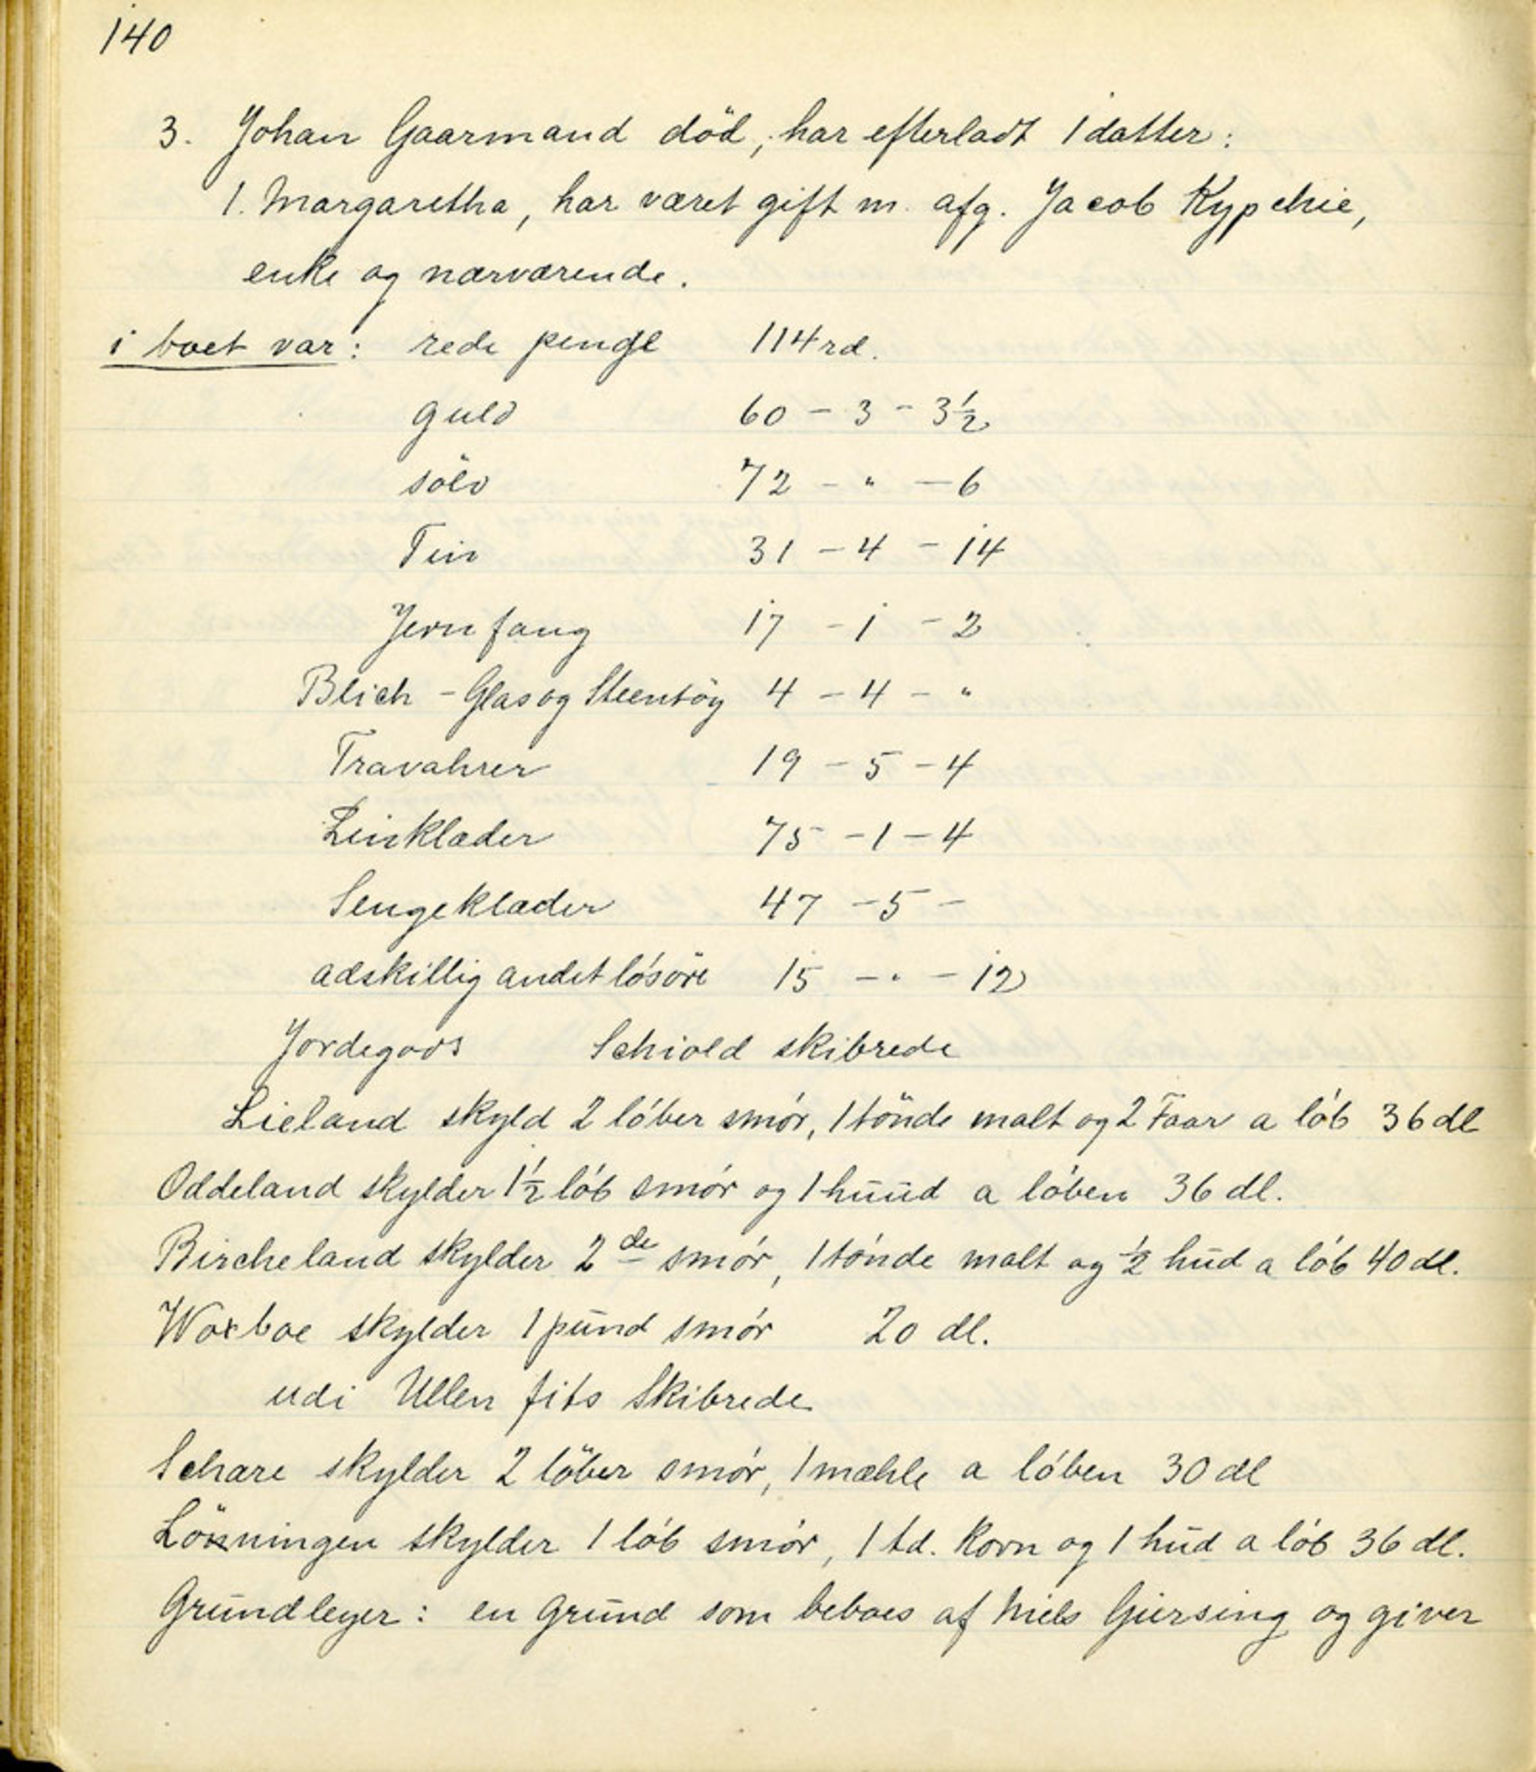 140
3. Johan Gaarmand död, har efterladt 1 datter:
1. Margaretha, har været gift m. afg. Jacob Kypchie,
enke og nærværende.
i boet var: rede penge 114 rd.
guld 60 - 3 - 3½
sölv 72 - " - 6
Tin 31 - 4 - 14
Jernfang 17 - 1 - 2
Blich - Glas og Steentöy 4 - 4 - "
Travahrer 19 - 5 - 4
Linklæder 75 - 1 - 4
Sengeklæder 47 - 5 -
adskillig andet lösöre 15 - " - 12
Jordegods Schiold skibrede
Lieland skyld 2 löber smör, 1 tönde malt og 2 Faar a löb 36 dl
Oddeland skylder 1½ löb smör og 1 huud a löben 36 dl.
Bircheland skylder 2 de smör, 1 tönde malt og ½ hud a löb 40 dl.
Woxboe skylder 1 pund smör 20 dl.
udi Ullen fits Skibrede
Schare skylder 2 löber smör, 1 mæhle a löben 30 dl
Lönningen skylder 1 löb smör, 1 td. korn og 1 hud a löb 36 dl.
Grundleyer: en Grund som beboes af Niels Giersing og giver